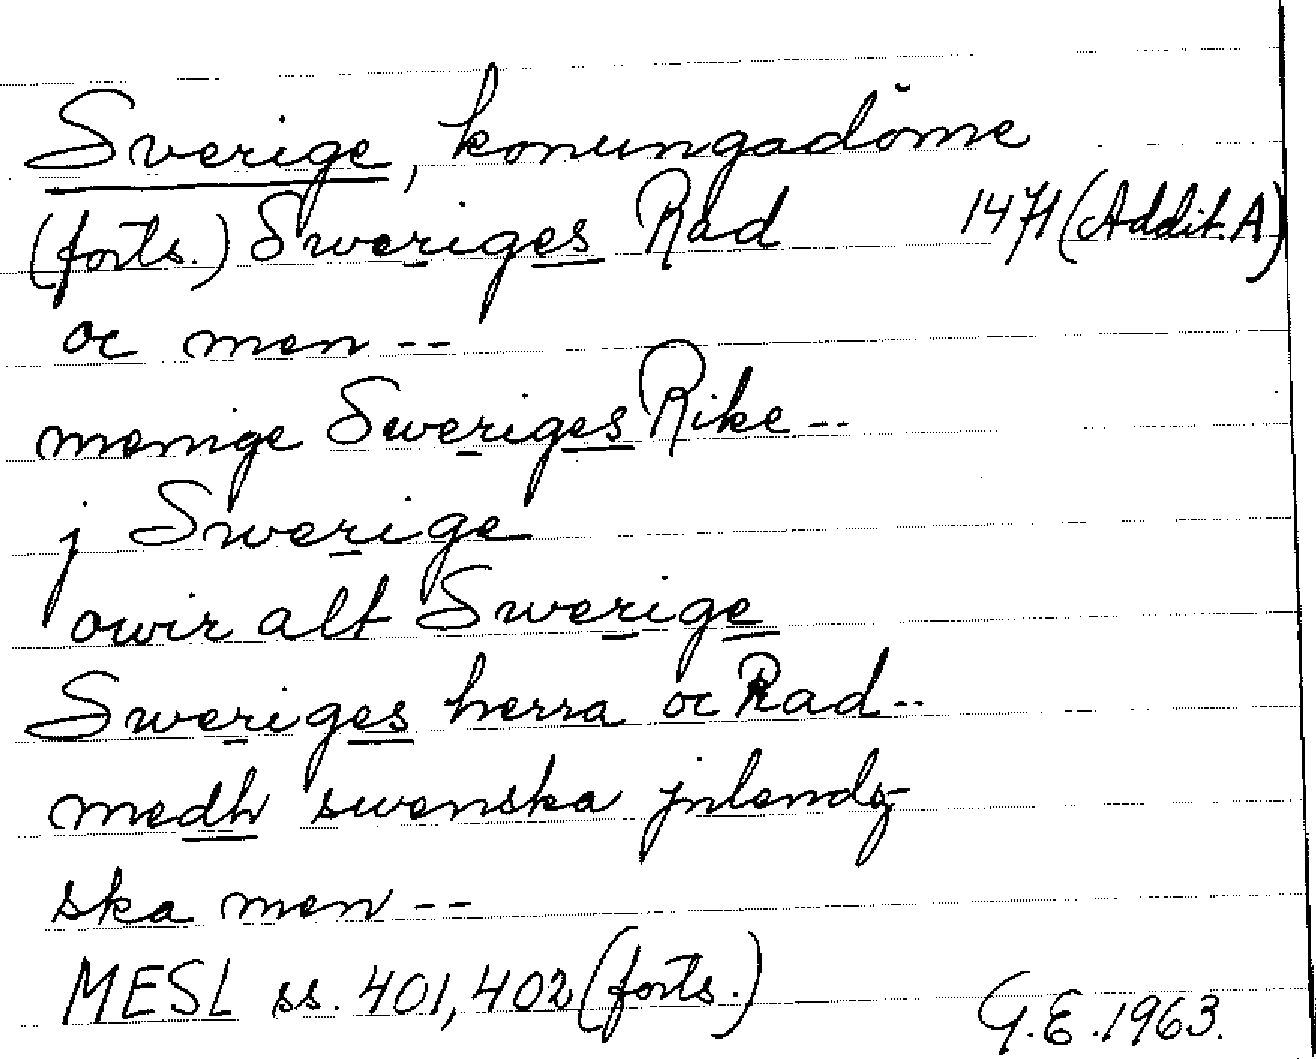 Sverige, konungadöme
(forts.) Sweriges Rad 1471 (Addit. A)
oc men --
menige Sweriges Rike --
j Swerige
owir alt Swerige
Sweriges herra oc Rad --
medh swenska jnlendz-
ska men --
MESL ss. 401, 402 (forts.)
G.E. 1963.